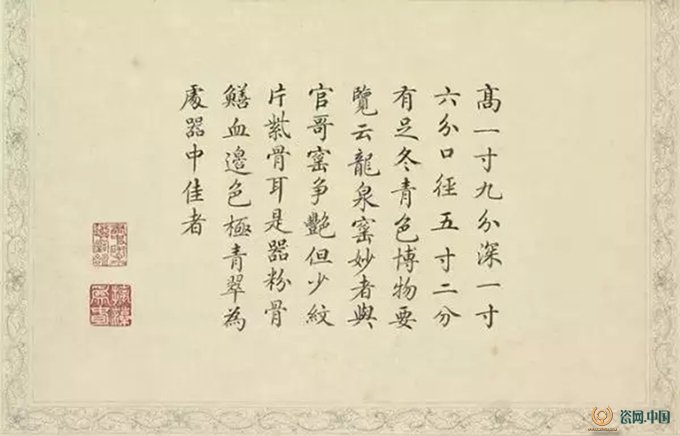 高一寸九分深一寸
六分口徑五寸二分
有足冬青色博物要
覽云龍泉窰妙者與
官哥窰争艷但少紋
片紫骨耳是器粉骨
鱔血邉色極青翠為
𠩄器中佳者
瓷网.中国